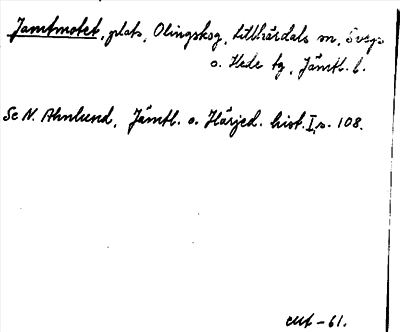 Jamtmotet, plats, Olingskog, Lillhärdals sn, Svegs
o. Hede tg, Jämtl. l.
Se N. Ahnlund, Jämtl. o. Härjed. hist. I, s. 108.
-61.